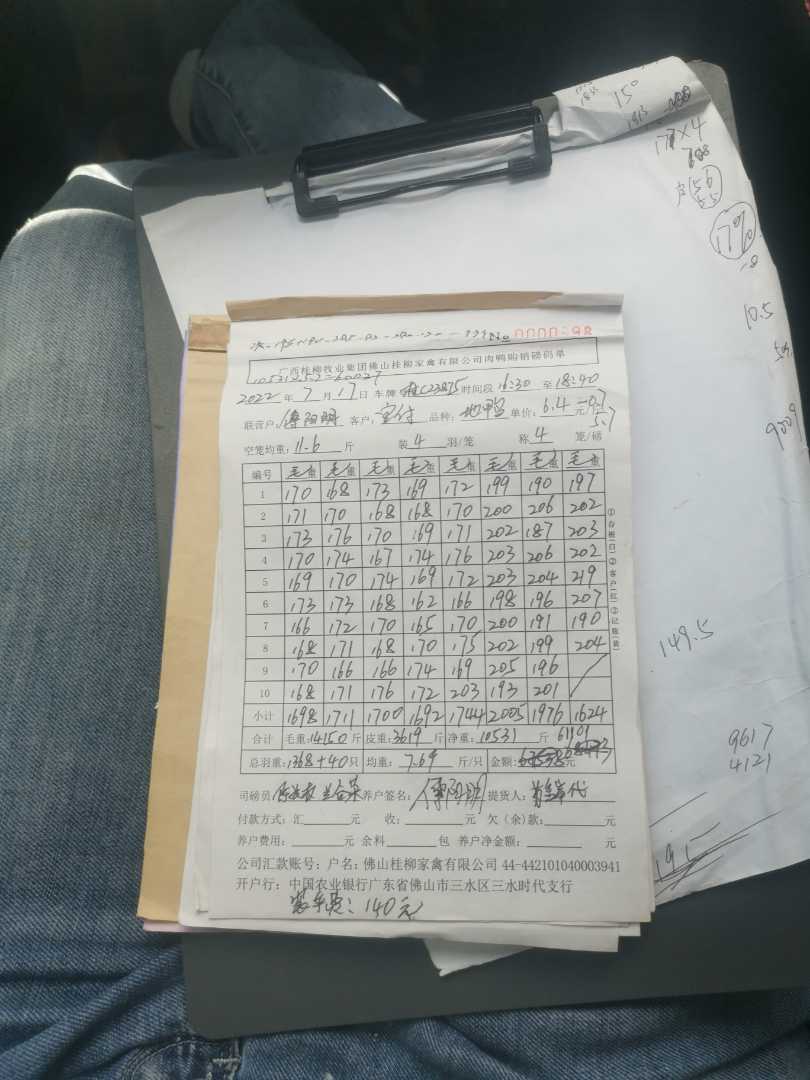 广西桂柳牧业集团佛山桂柳家禽有限公司肉鸭购销磅码单
2022年7月17日 车牌 C23875 时间段 16:30 至 18:40
联营户: 客户: 品种: 单价: 6.4 元 -0.7
5.7
空笼均重: 11.6 斤 装 4 羽/笼 称 4 笼/磅
编号 毛重 毛重 毛重 毛重 毛重 毛重 毛重 毛重
1 170 168 173 169 172 199 190 197
2 171 170 168 168 170 200 206 202
3 173 176 170 169 171 202 187 203
4 170 174 167 174 176 203 206 202
5 169 170 174 169 172 203 204 219
6 173 173 168 162 166 198 196 207
7 166 172 170 165 170 200 191 190
8 168 171 168 170 175 202 199 204
9 170 166 166 174 169 205 196
10 168 171 176 172 203 193 201
小计 1698 1711 1700 1692 1744 2005 1976 1624
合计 毛重: 14150 斤 皮重: 3619 斤 净重: 10531 斤
总羽重: 1368+40 只 均重: 7.69 斤/只 金额: 元
司磅员 养户签名: 提货人:
付款方式: 汇 元 收: 元 欠(余)款: 元
养户费用: 元 余料 包 养户净金额: 元
公司汇款账号: 户名: 佛山桂柳家禽有限公司 44-442101040003941
开户行: 中国农业银行广东省佛山市三水区三水时代支行
装车费: 140元
①存根(白)②客户(红)③记账(黄)
150
17%
10.5
149.5
9617
4121